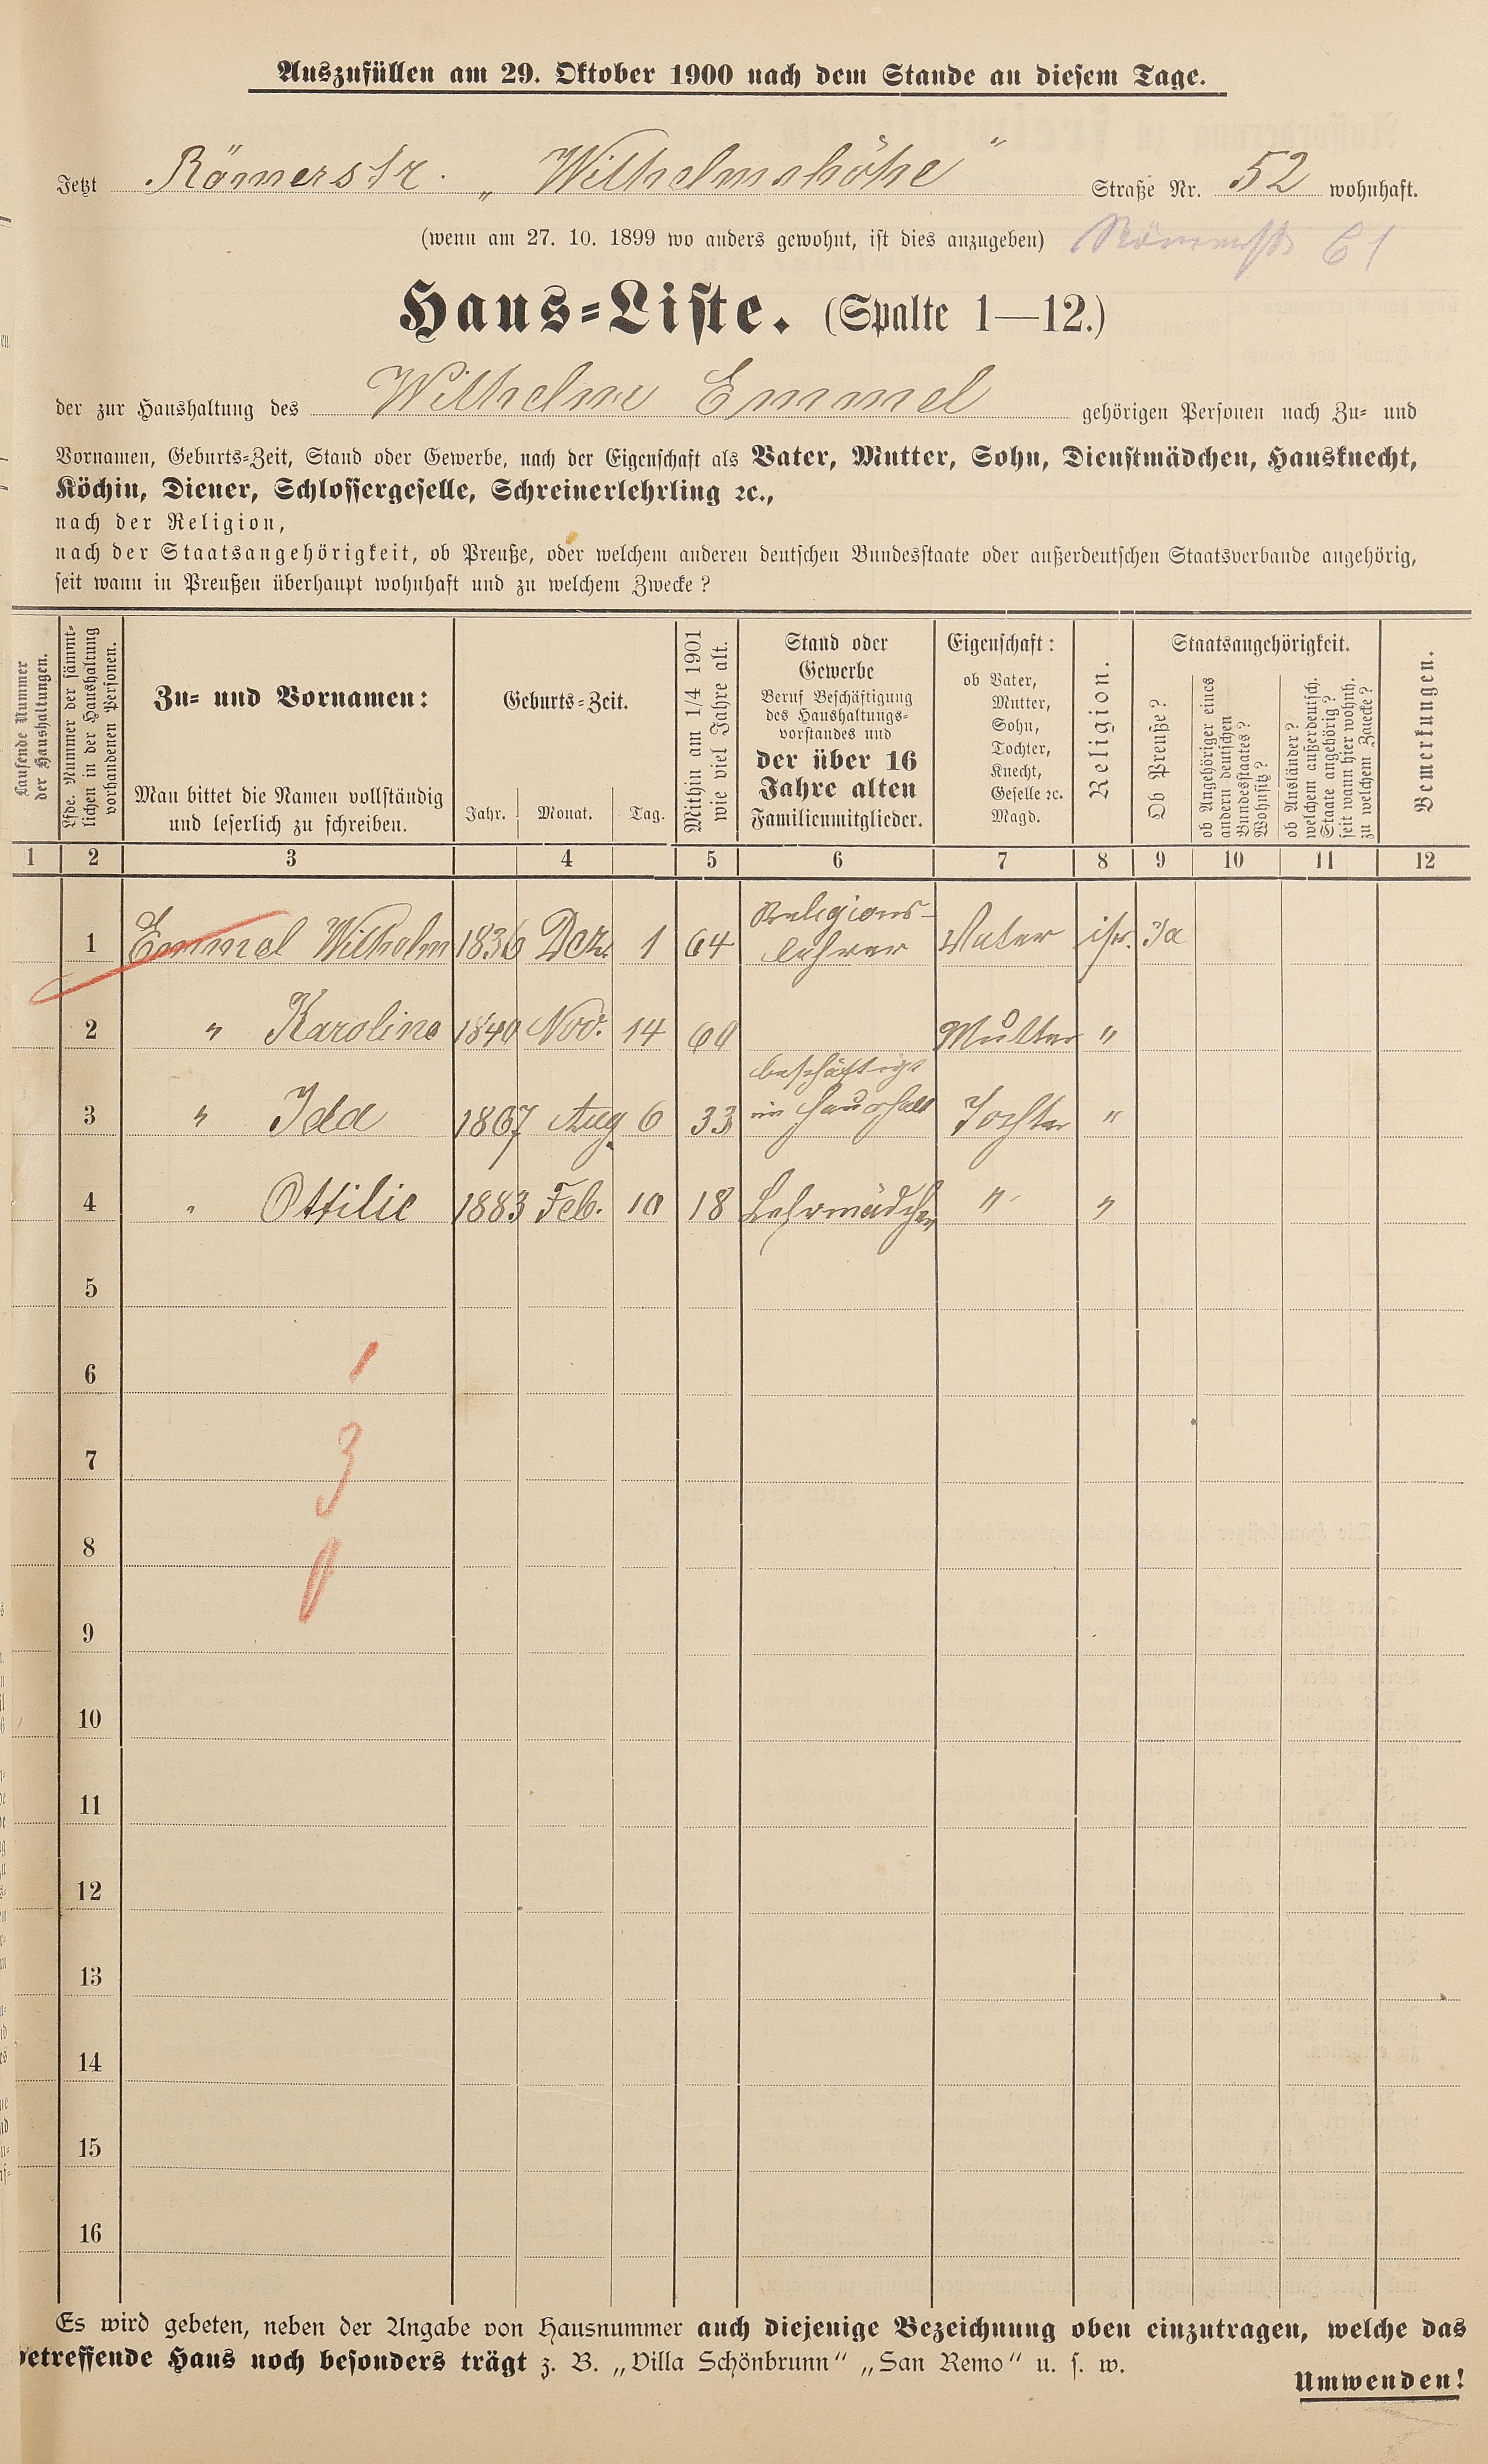 Auszufüllen am 29. Oktober 1900 nach dem Stande an diesem Tage.
Jetzt Römerstr. „ Wilhelmshöhe “ Straße Nr. 52 wohnhaft.
(wenn am 27. 10. 1899 wo anders gewohnt, ist dies anzugeben) Römerstr 61
Haus=Liste. (Spalte 1—12.)
der zur Haushaltung des Wilhelm Emmel gehörigen Personen nach Zu= und
Vornamen, Geburts=Zeit, Stand oder Gewerbe, nach der Eigenschaft als Vater, Mutter, Sohn, Dienstmädchen, Hausknecht,
Köchin, Diener, Schlossergeselle, Schreinerlehrling ꝛc.,
nach der Religion,
nach der Staatsangehörigkeit, ob Preuße, oder welchem anderen deutschen Bundesstaate oder außerdeutschen Staatsverbande angehörig,
seit wann in Preußen überhaupt wohnhaft und zu welchem Zwecke?
Laufende Nummer
der Haushaltungen.
Lfde. Nummer der sämmt=
lichen in der Haushaltung
vorhandenen Personen.
Zu= und Vornamen:
Man bittet die Namen vollständig
und leserlich zu schreiben.
Geburts=Zeit.
Jahr. Monat. Tag.
Mithin am 1/4 1901
wie viel Jahre alt.
Stand oder
Gewerbe
Beruf Beschäftigung
des Haushaltungs=
vorstandes und
der über 16
Jahre alten
Familienmitglieder.
Eigenschaft:
ob Vater,
Mutter,
Sohn,
Tochter,
Knecht,
Geselle ꝛc.
Magd.
Religion.
Staatsangehörigkeit.
Ob Preuße?
ob Angehöriger eines
andern deutschen
Bundesstaates?
Wohnsitz?
ob Ausländer?
welchem außerdeutsch.
Staate angehörig?
seit wann hier wohnh.
zu welchem Zwecke?
Bemerkungen.
1 2 3 4 5 6 7 8 9 10 11 12
1 Emmel Wilhelm 1836 Dez. 1 64 Religions-
lehrer Vater isr. Ja
2 " Karoline 1840 Nov. 14 60 Mutter "
3 " Ida 1867 Aug 6 33 beschäftigt
im Haushalt Tochter "
4 " Ottilie 1883 Feb. 10 18 Lehrmädchen " "
5
6
7 3
8
9
10
11
12
13
14
15
16
Es wird gebeten, neben der Angabe von Hausnummer auch diejenige Bezeichnung oben einzutragen, welche das
betreffende Haus noch besonders trägt z. B. „Villa Schönbrunn“ „San Remo“ u. s. w.
Umwenden!